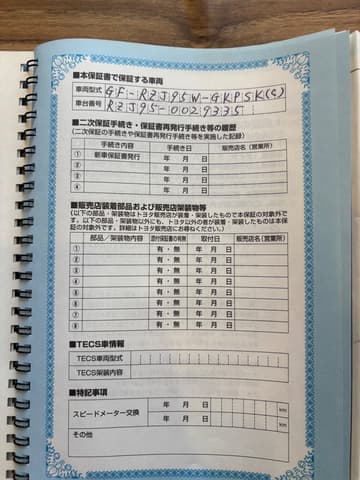 ■本保証書で保証する車両
車両型式 GF-RZJ95W-GKPSK(S)
車台番号 RZJ95-0029335
■二次保証手続き・保証書再発行手続き等の履歴
(二次保証の手続きや保証書再発行手続き等を実施した記録)
手続き内容 手続き日 販売店名(営業所)
① 新車保証書発行 年 月 日
② 年 月 日
③ 年 月 日
④ 年 月 日
■販売店装着部品および販売店架装物等
(以下の部品・架装物はトヨタ販売店が装着・架装したもので本保証の対象外です。以下の部品・架装物以外にも、トヨタ以外の者が装着・架装したものは本保証の対象外です。詳細はトヨタ販売店にお尋ねください。)
部品/架装物内容 添付保証書の有無 取付日 販売店名(営業所)
① 有・無 年 月 日
② 有・無 年 月 日
③ 有・無 年 月 日
④ 有・無 年 月 日
⑤ 有・無 年 月 日
⑥ 有・無 年 月 日
⑦ 有・無 年 月 日
⑧ 有・無 年 月 日
■TECS車情報
TECS車両型式
TECS架装内容
■特記事項
スピードメーター交換 年 月 日 km
年 月 日 km
その他